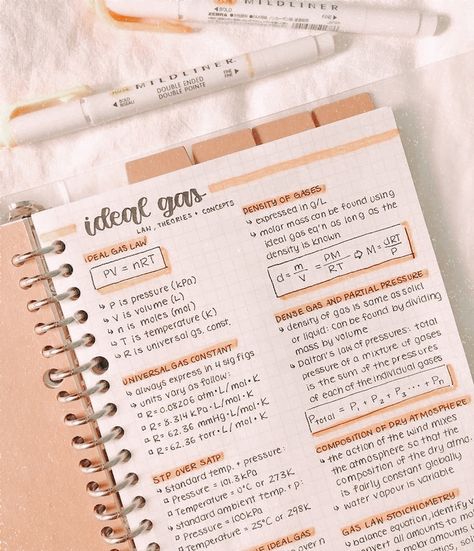 BOLD
FINE
MILDLINER
DOUBLE ENDED
DOUBLE POINTE
BOLD
FINE
ideal gas
LAW, THEORIES + CONCEPTS
IDEAL GAS LAW
PV = nRT
↳ P is pressure (kPa)
↳ V is volume (L)
↳ n is moles (mol)
↳ T is temperature (K)
↳ R is universal gs. const.
UNIVERSAL GAS CONSTANT
↳ always express in 4 sig figs
↳ units vary as follow:
R= 0.08206 atm·L/mol·K
R= 8.314 kPa·L/mol·K
R= 62.36 mmHg·L/mol·K
R= 62.36 torr·L/mol·K
STP OVER SATP
↳ standard temp. + pressure:
Pressure = 101.3 kPa
Temperature = 0°C or 273K
↳ standard ambient temp. + p:
Pressure = 100kPa
Temperature = 25°C or 298K
IDEAL GAS
DENSITY OF GASES
↳ expressed in g/L
↳ molar mass can be found using
ideal gas eq'n as long as the
density is known
d = m/V = PM/RT ⇨ M = dRT/P
DENSE GAS AND PARTIAL PRESSURE
↳ density of gas is same as solid
or liquid: can be found by dividing
mass by volume
↳ Dalton's law of pressures: total
pressure of a mixture of gases
is the sum of the pressures
of each of the individual gases
P total = P1 + P2 + P3 ... + Pn
COMPOSITION OF DRY ATMOSPHERE
↳ the action of the wind mixes
the atmosphere so that the
composition of the dry atmo
is fairly constant globally
↳ water vapour is variable
GAS LAW STOICHIOMETRY
↳ balance equation, identify
all amounts to mol